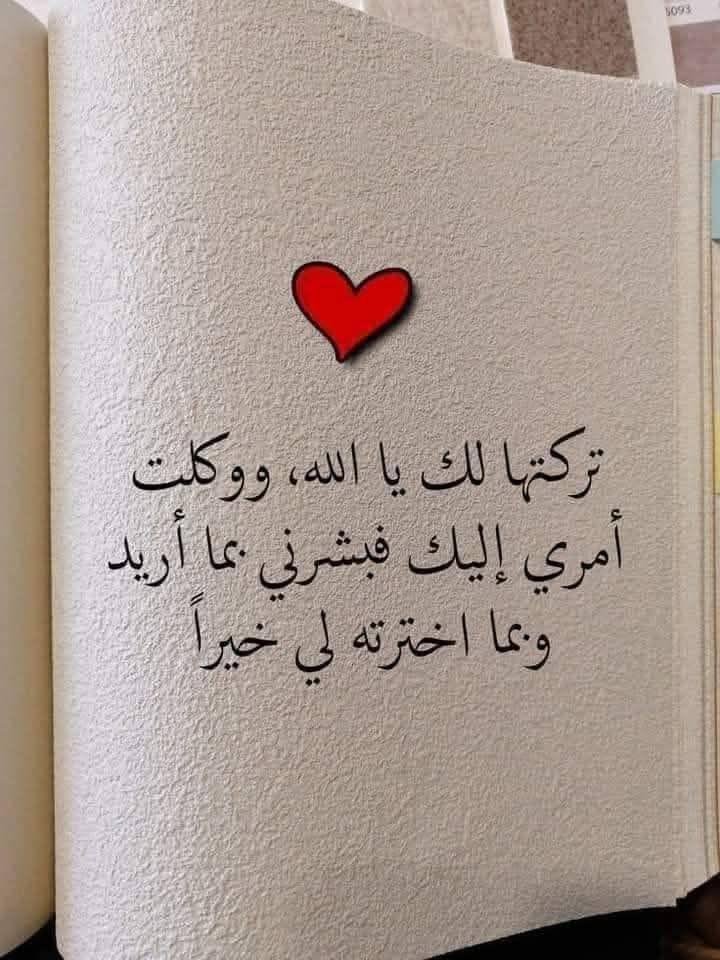 5093
تركتها لك يا الله، ووكلت
أمري إليك فبشرني بما أريد
وبما اخترته لي خيراً